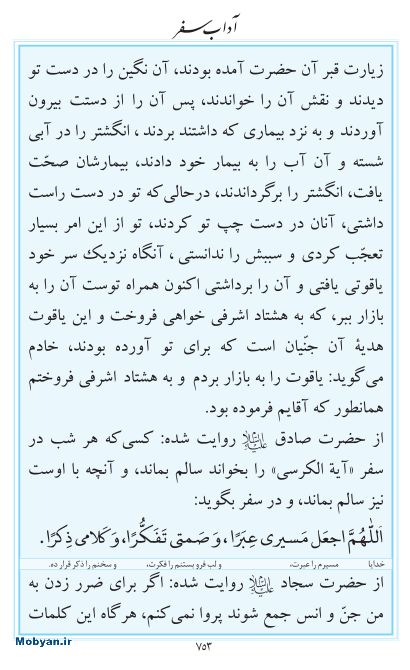 آداب سفر
زیارت قبر آن حضرت آمده بودند، آن نگین را در دست تو
دیدند و نقش آن را خواندند، پس آن را از دستت بیرون
آوردند و به نزد بیماری که داشتند بردند، انگشتر را در آبی
شسته و آن آب را به بیمار خود دادند، بیمارشان صحّت
یافت، انگشتر را برگرداندند، درحالی‌که تو در دست راست
داشتی، آنان در دست چپ تو کردند، تو از این امر بسیار
تعجّب کردی و سببش را ندانستی، آنگاه نزدیک سر خود
یاقوتی یافتی و آن را برداشتی اکنون همراه توست آن را به
بازار ببر، که به هشتاد اشرفی خواهی فروخت و این یاقوت
هدیۀ آن جنّیان است که برای تو آورده بودند، خادم
می‌گوید: یاقوت را به بازار بردم و به هشتاد اشرفی فروختم
همانطور که آقایم فرموده بود.
از حضرت صادق علیه‌السلام روایت شده: کسی‌که هر شب در
سفر «آیة الکرسی» را بخواند سالم بماند، و آنچه با اوست
نیز سالم بماند، و در سفر بگوید:
اَللّٰهُمَّ اجعَل مَسیری عِبَرًا، وَ صَمتی تَفَکُّرًا، وَ کَلامی ذِکرًا.
خدایا مسیرم را عبرت، و لب فرو بستنم را فکرت، و سخنم را ذکر قرار ده.
از حضرت سجاد علیه‌السلام روایت شده: اگر برای ضرر زدن به
من جنّ و انس جمع شوند پروا نمی‌کنم، هرگاه این کلمات
۷۵۳
Mobyan.ir